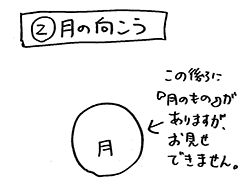 ②月の向こう
この後ろに
『月のもの』が
ありますが、
お見せ
できません。
月